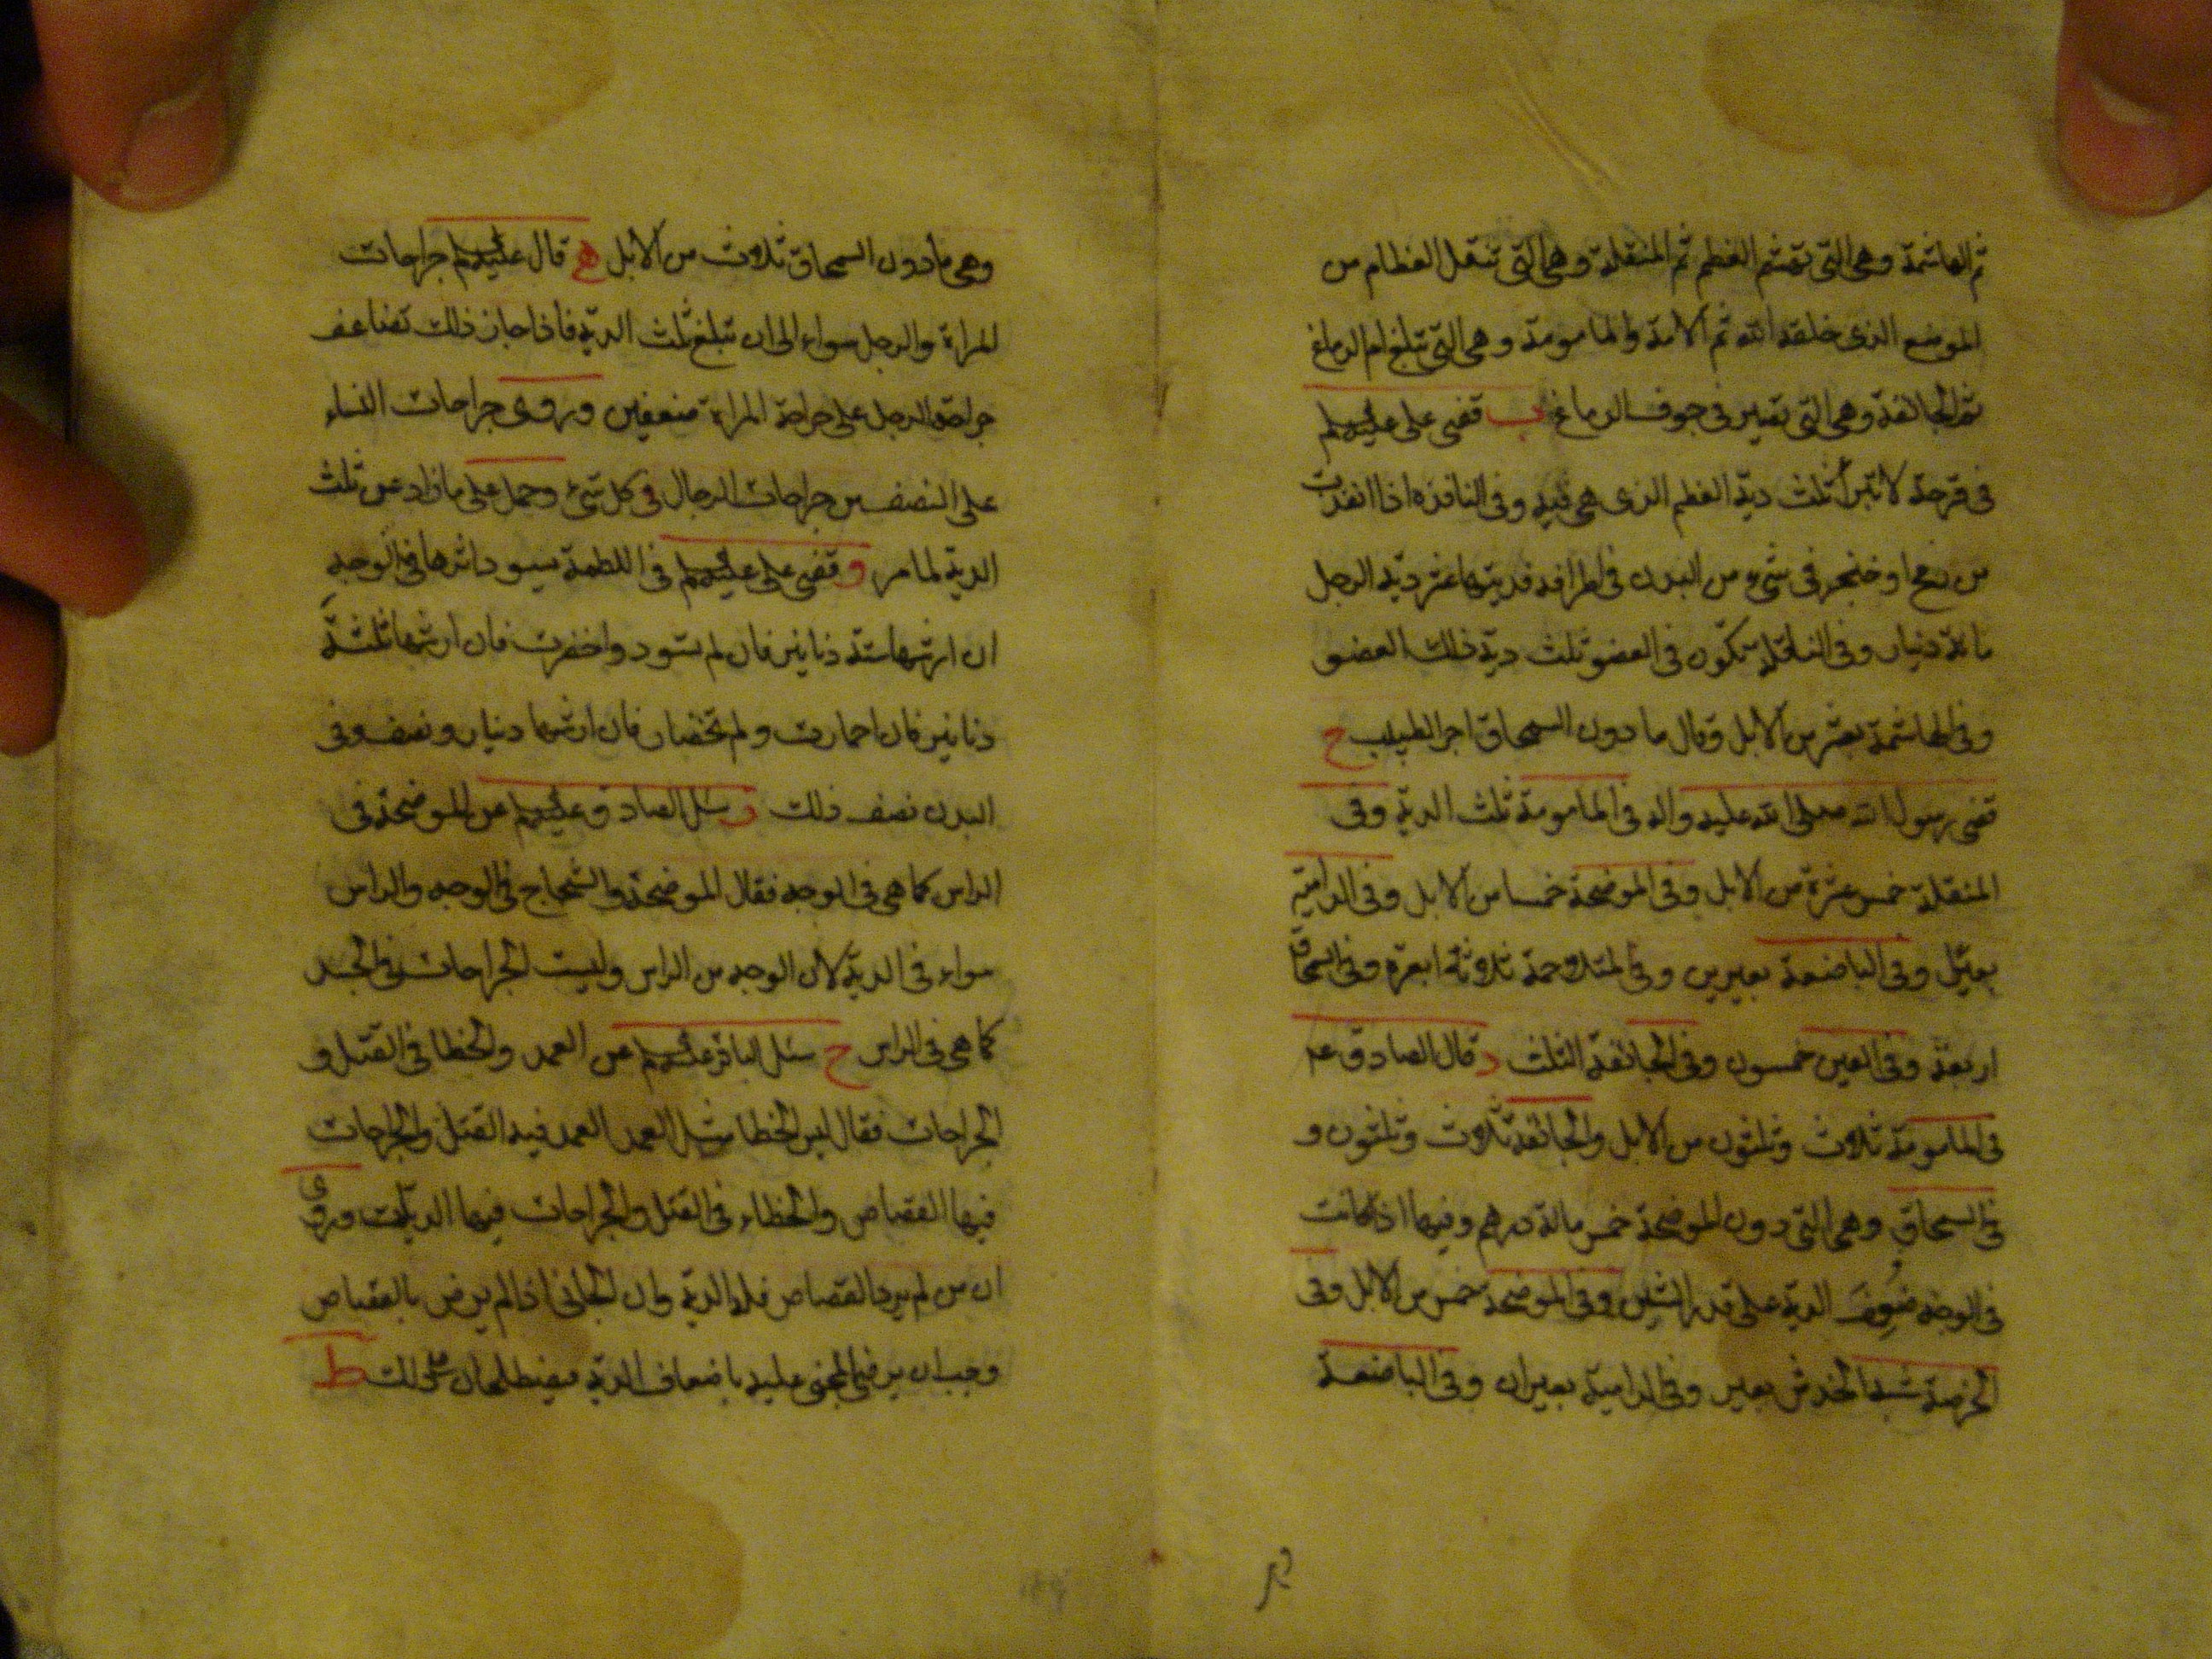 ثم الهاشمة وهي التي تهشم العظم ثم المنقلة وهي التي تنقل العظام من
الموضع الذي خلقه الله ثم الامة والمامومة وهي التي تبلغ ام الدماغ
ثم الجائفة وهي التي تصير في جوف الدماغ ب قضى علي عليه السلم
في قرحة لا تبرأ ثلث دية العظم الذي هي فيه وفي النافذة اذا انفذت
من رمح او خنجر في شيء من البدن في اطرافه فديتها عشر دية الرجل
مائة دينار وفي الناقلة تكون في العضو ثلث دية ذلك العضو
وفي الهاشمة بعشر من الابل وقال ما دون السمحاق اجر الطبيب ج
قضى رسول الله صلى الله عليه واله في المامومة ثلث الدية وفي
المنقلة خمس عشرة من الابل وفي الموضحة خمسا من الابل وفي الدامية
بعير وفي الباضعة بعيرين وفي المتلاحمة ثلاثة ابعرة وفي السمحاق
اربعة وفي العين خمسون وفي الجائفة الثلث د قال الصادق عم
في المامومة ثلاث وثلثون من الابل والجائفة ثلاث وثلثون و
في السمحاق وهي التي دون الموضحة خمس مائة درهم وفيها اذا كانت
في الوجه ضوعف الدية على قدر الشين وفي الموضحة خمس من الابل وفي
الحرصة شبه الخدش بعير وفي الدامية بعيران وفي الباضعة
وهي ما دون السمحاق ثلاث من الابل ه قال عليه السلم جراحات
المراة والرجل سواء الى ان تبلغ ثلث الدية فاذا جاز ذلك تضاعف
جراحة الرجل على جراحة المراة ضعفين وروى جراحات النساء
على النصف من جراحات الرجال في كل شيء وحمل على ما زاد عن ثلث
الدية لما مر و قضى علي عليه السلم في اللطمة يسود اثرها في الوجه
ان ارشها ستة دنانير فان لم تسود واخضرت فان ارشها ثلثة
دنانير فان احمارت ولم تخضار فان ارشها دينار ونصف وفي
البدن نصف ذلك ز سئل الصادق عليه السلم عن الموضحة في
الراس كما هي في الوجه فقال الموضحة والشجاج في الوجه والراس
سواء في الدية لان الوجه من الراس وليست الجراحات في الجسد
كما هي في الراس ح سئل الباقر عليه السلم عن العمد والخطا في القتل و
الجراحات فقال ليس الخطا مثل العمد العمد فيه القتل والجراحات
فيها القصاص والخطاء في القتل والجراحات فيها الديات وروى
ان من لم يرد القصاص فله الدية وان الجاني اذا لم يرض بالقصاص
وجب ان يرضى المجني عليه باضعاف الدية ط